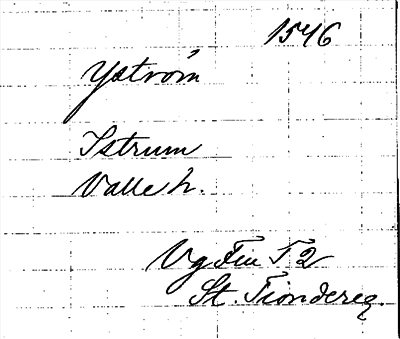 1546
Yström
Istrum
Valle h.
Vg Fin T 2
St. Tiondereg.